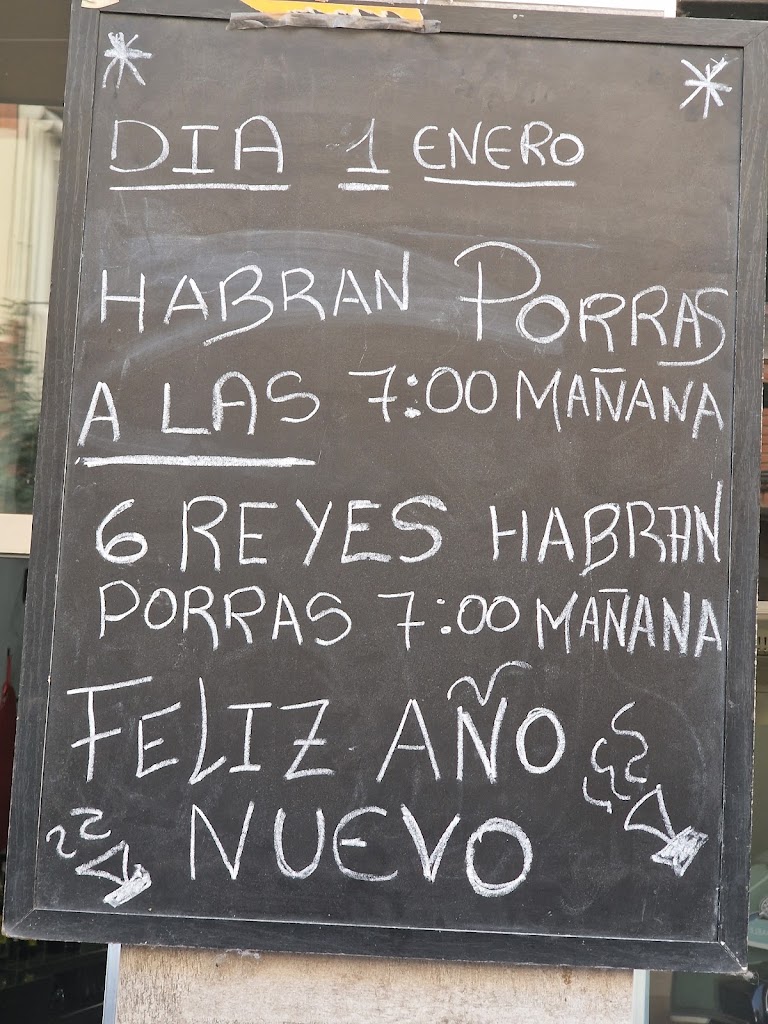 DIA 1 ENERO
HABRAN PORRAS
A LAS 7:00 MAÑANA
6 REYES HABRAN
PORRAS 7:00 MAÑANA
FELIZ AÑO
NUEVO